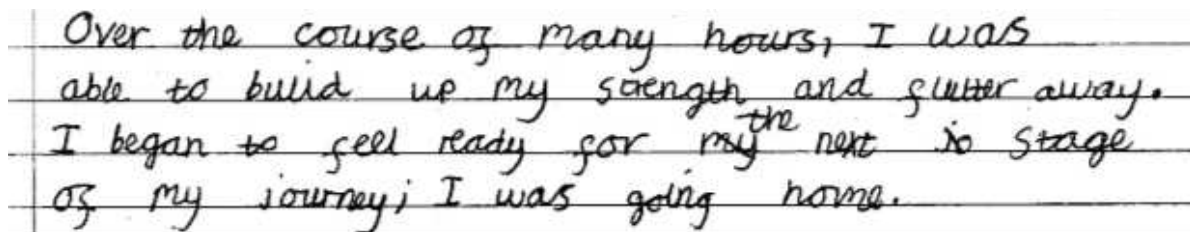 Over the course of many hours, I was
able to build up my strength and flutter away.
I began to feel ready for my the next jo stage
of my journey; I was going home.